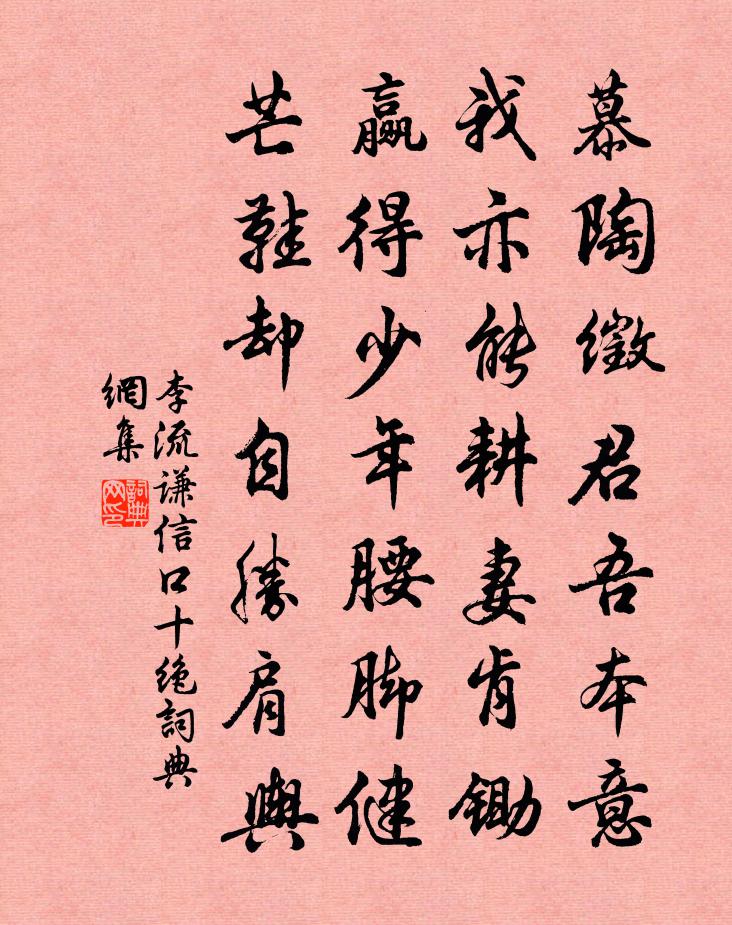 慕陶徵君吾本意
我亦能耕妻肯鋤
贏得少年腰脚健
芒鞋却自勝肩輿
李流謙信口十絶詞典
網集
詞典
网印